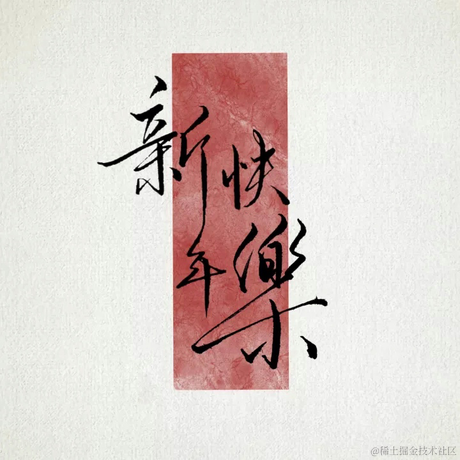 新年
快樂
@稀土掘金技术社区